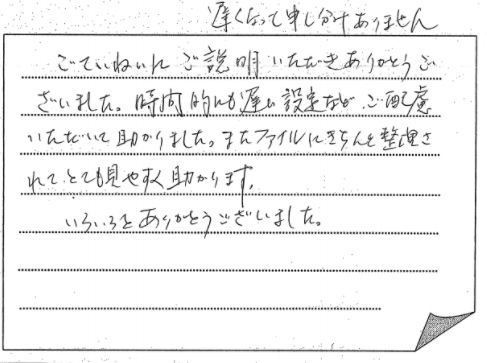 遅くなって申し分けありません
ごていねいに ご説明いただきありがとうご
ざいました。時間的にも遅い設定など、ご配慮
いただいて助かりました。またファイルにきちんと整理さ
れて、とても見やすく助かります。
いろいろとありがとうございました。